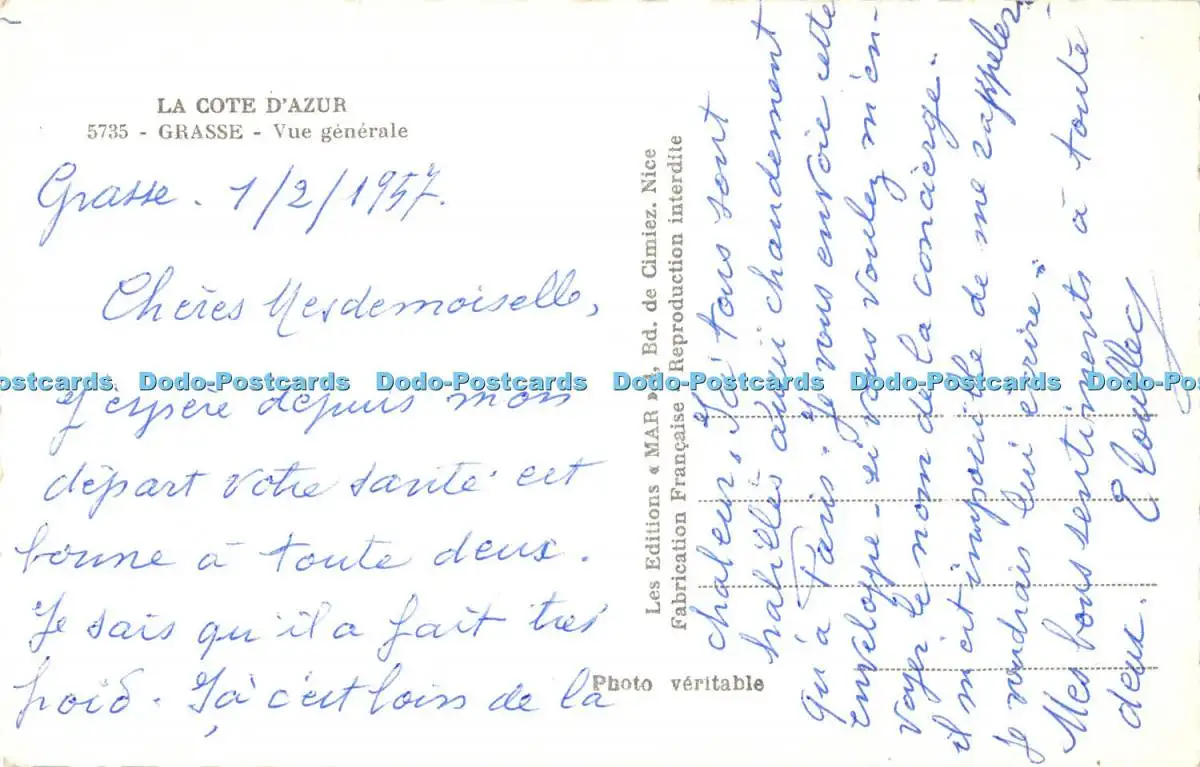 LA COTE D'AZUR
5735 - GRASSE - Vue générale
Grasse. 1/2/1957.
Chères Mesdemoiselle,
J'espère dépuis mon
départ votre santé est
bonne à toute deux.
Je sais qu'il a fait très
froid. Ici c'est loin de la
chaleur, Ici tous sont
habillés aussi chaudement
qu'à Paris. Je vous envoie cette
enveloppe - si vous voulez m'en-
voyer le nom de la concierge -
il m'est impossible de me rappeler -
Je voudrais lui écrire "
Mes bons sentiments à toute
deux.
Les Editions « MAR » Bd. de Cimiez. Nice
Fabrication Française Reproduction interdite
Photo véritable
ostcards Dodo-Postcards Dodo-Postcards Dodo-Postcards Dodo-Postcards Dodo-Postcards